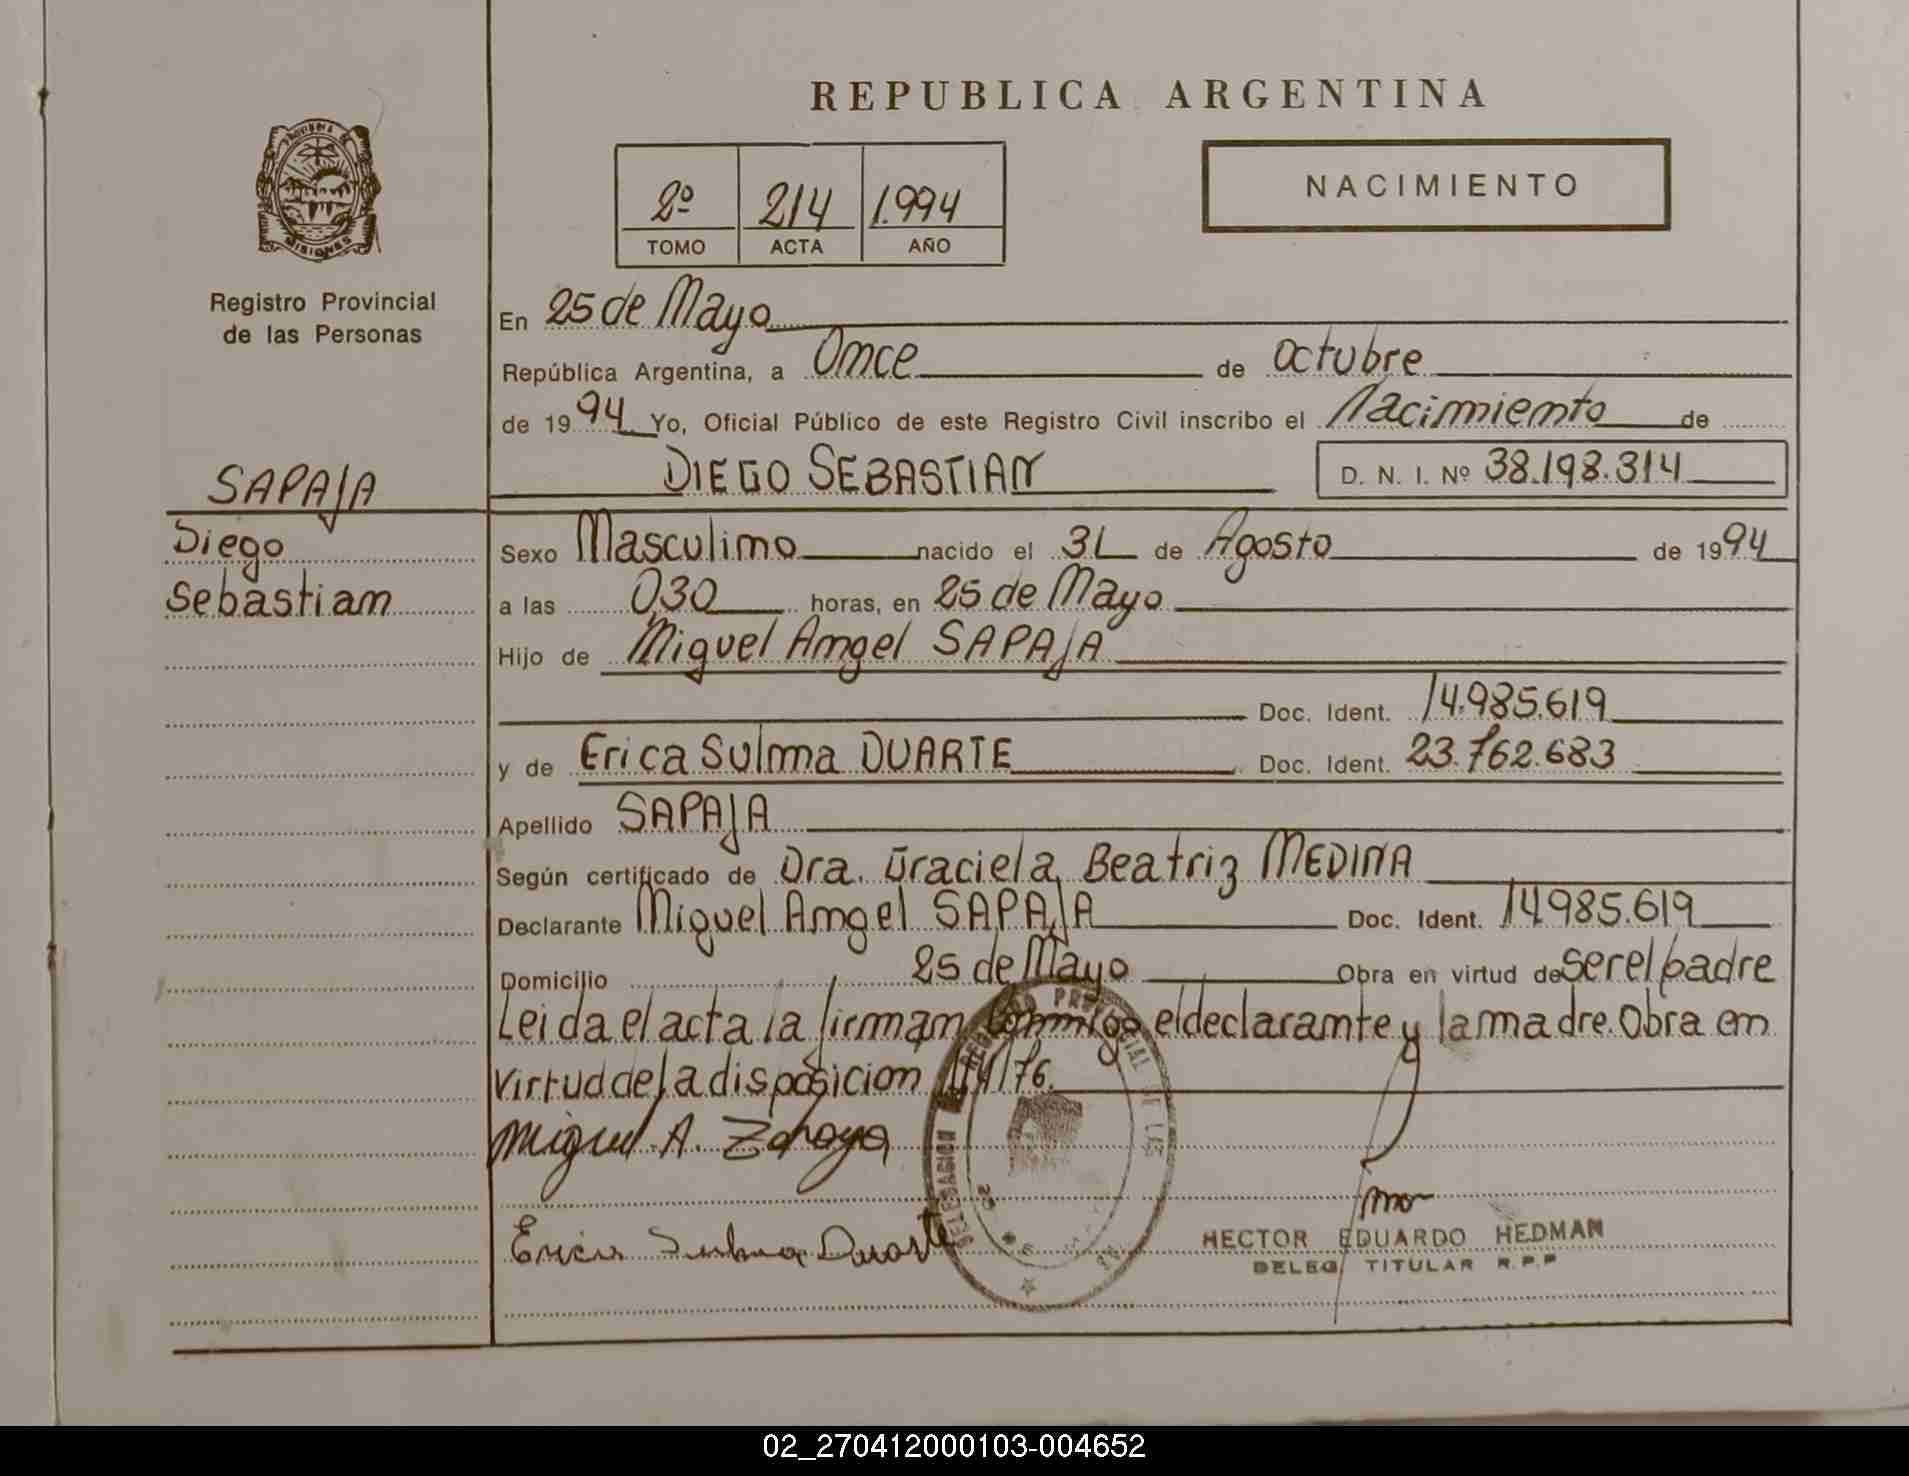 REPUBLICA ARGENTINA
PROVINCIA DE
MISIONES
Registro Provincial
de las Personas
2º 214 1.994
TOMO ACTA AÑO
NACIMIENTO
En 25 de Mayo
República Argentina, a Once de octubre
de 1994 Yo, Oficial Público de este Registro Civil inscribo el Nacimiento de
DIEGO SEBASTIAN D. N. I. Nº 38.198.314
SAPAJA
Diego
Sebastian
Sexo Masculino nacido el 31 de Agosto de 1994
a las 0,30 horas, en 25 de Mayo
Hijo de Miguel Angel SAPAJA
Doc. Ident. 14.985.619
y de Erica Sulma DUARTE Doc. Ident. 23.762.683
Apellido SAPAJA
Según certificado de Dra. Graciela Beatriz MEDINA
Declarante Miguel Angel SAPAJA Doc. Ident. 14985.619
Domicilio 25 de Mayo Obra en virtud de ser el padre
Leida el acta la firman conmigo el declarante y la madre. Obra en
virtud de la disposicion /76.
Miguel A. Zapaya
Erica Sulma Duarte
DELEGACION REGISTRO PROVINCIAL DE LAS
25
HECTOR EDUARDO HEDMAN
DELEG. TITULAR R.P.P
02_270412000103-004652